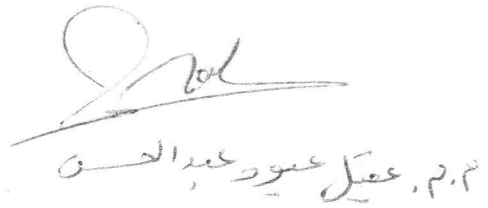 م.م. عقيل عبود عبد الحسن